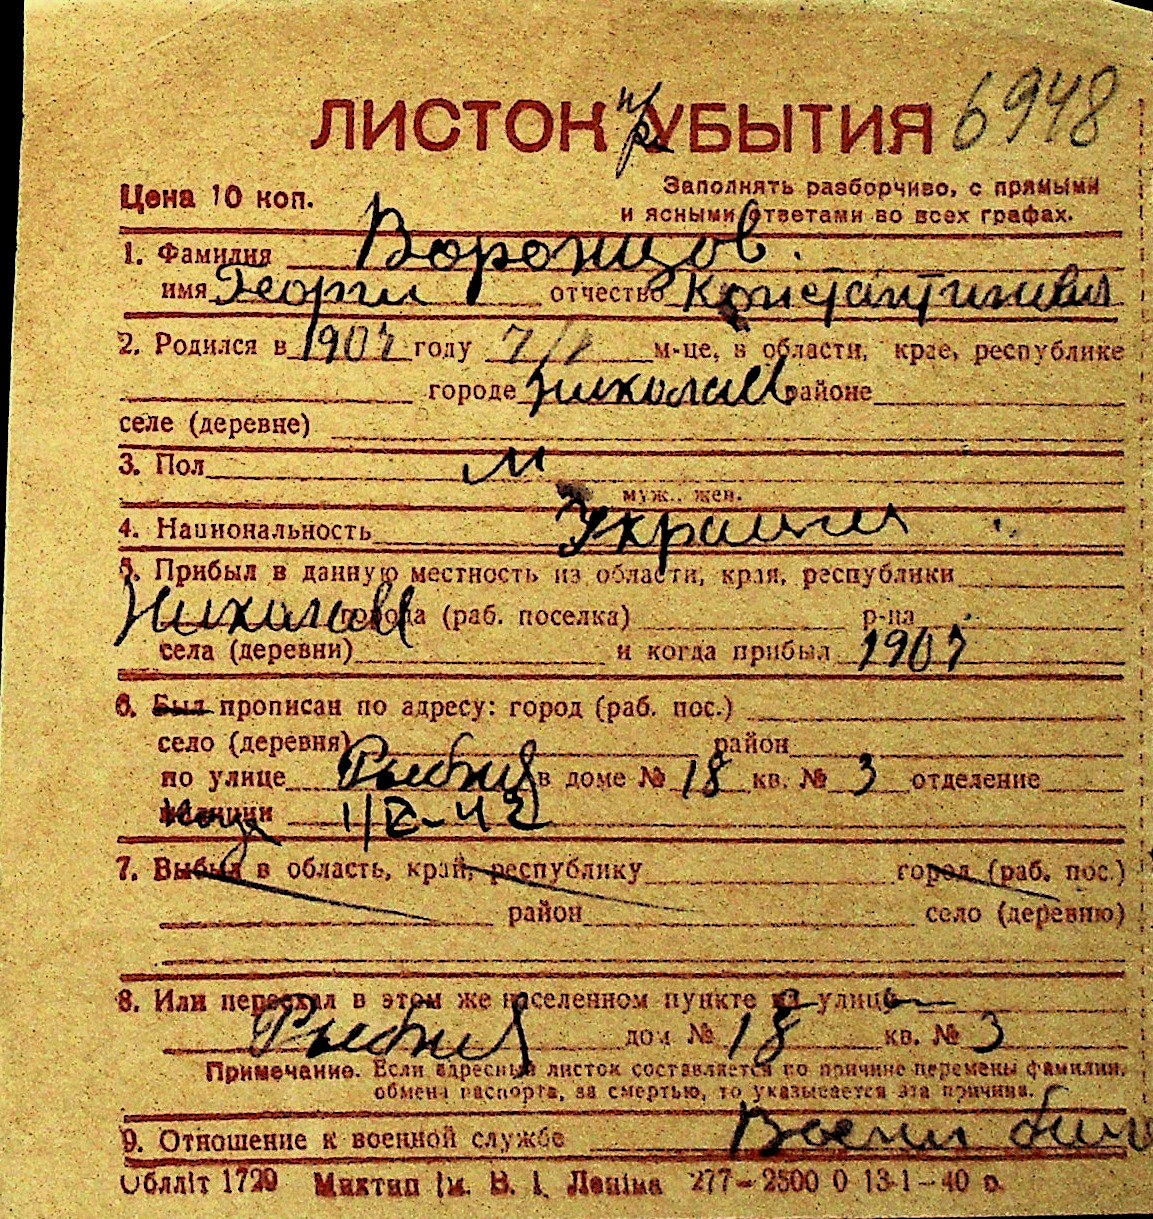 ЛИСТОК пр УБЫТИЯ 6948
Цена 10 коп.
Заполнять разборчиво, с прямыми
и ясными ответами во всех графах.
1. Фамилия Воронцов.
имя Георги отчество Константинович
2. Родился в 1907 году м-це, в области, крае, республике
городе Николаев районе
селе (деревне)
3. Пол м
муж. жен.
4. Национальность Украин
5. Прибыл в данную местность из области, края, республики
Николаев города (раб. поселка) р-на
села (деревни) и когда прибыл 1907
6. Был прописан по адресу: город (раб. пос.)
село (деревня) район
по улице Рыбная в доме № 18 кв. № 3 отделение
милиции
7. Выбыл в область, край, республику город (раб. пос.)
район село (деревню)
8. Или переехал в этом же населенном пункте на улицу
Рыбная дом № 18 кв. № 3
Примечание. Если адресный листок составляется по причине перемены фамилии,
обмена паспорта, за смертью, то указывается эта причина.
9. Отношение к военной службе Военн
Обллiт 1729 Миктип iм. В. I. Ленiна 277–2500 0 13-1–40 р.